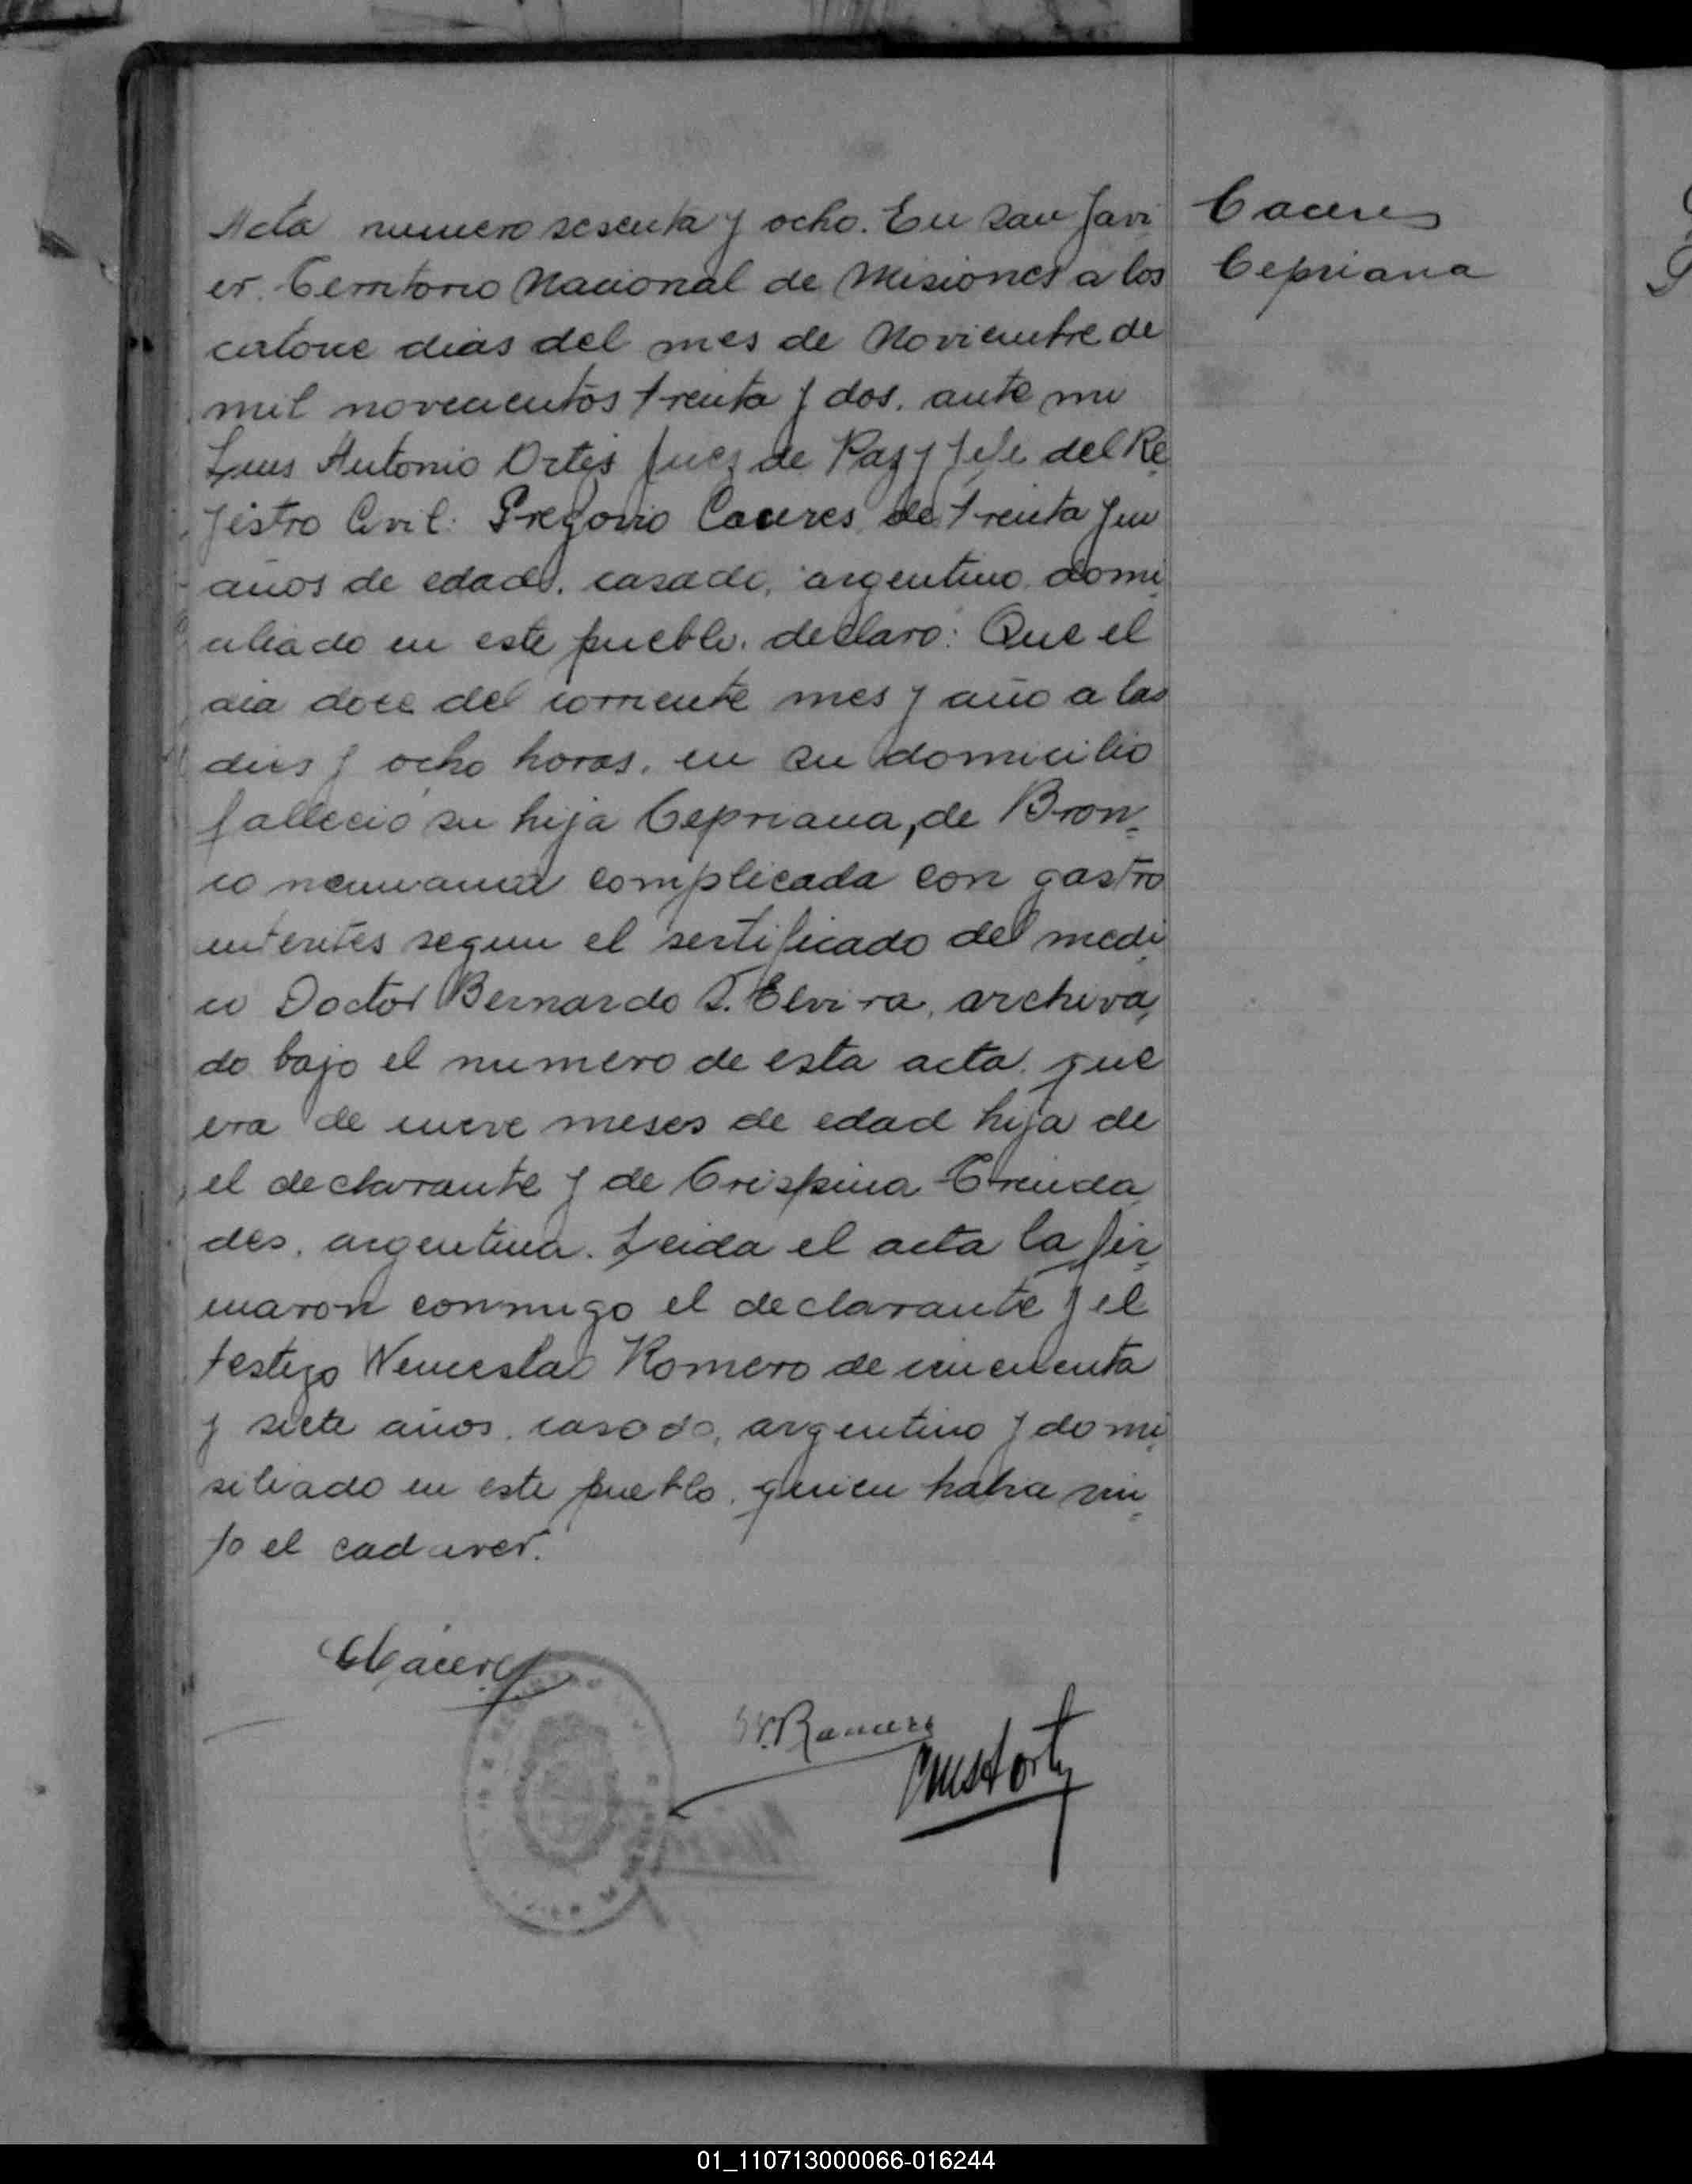 Acta numero sesenta y ocho. En San Javi
er. Territorio Nacional de Misiones a los
catorce dias del mes de Noviembre de
mil novecientos treinta y dos. ante mi
Luis Antonio Ortis Juez de Paz y Jefe del Re
jistro Civil: Gregorio Caceres de treinta y un
años de edad. casado, argentino domi
ciliado en este pueblo. declaro: Que el
dia doce del corriente mes y año a las
dies y ocho horas. en su domicilio
fallecio su hija Cepriana, de Bron
co neumania complicada con gastro
enterites segun el sertificado del medi
co Doctor Bernardo S. Elvira, archiva
do bajo el numero de esta acta. que
era de nueve meses de edad hija de
el declarante y de Crispina Trinda
des, argentina. Leida el acta la fir
maron conmigo el declarante y el
testigo Wenceslao Romero de cincuenta
y siete años, casado, argentino y domi
siliado en este pueblo. quien habia vis
to el cadaver.
Caceres
Cepriana
GCáceres
W. Romero
Luis A Ortiz
01_110713000066-016244